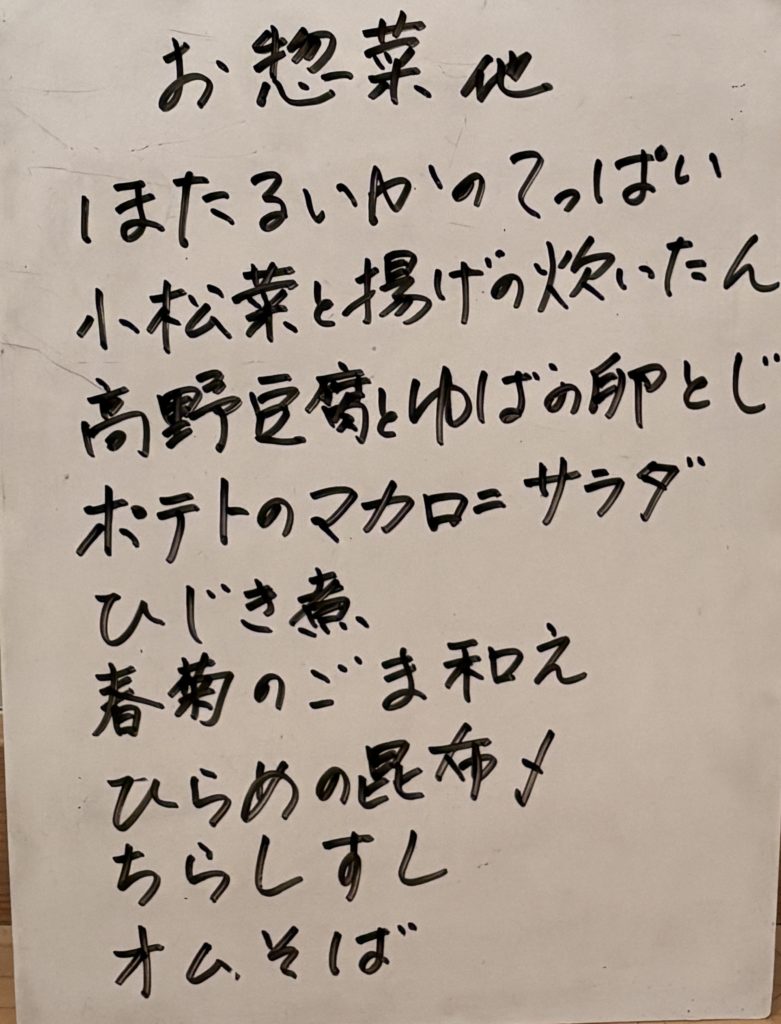 お惣菜他
ほたるいかのてっぱい
小松菜と揚げの炊いたん
高野豆腐とゆばの卵とじ
ポテトのマカロニサラダ
ひじき煮
春菊のごま和え
ひらめの昆布〆
ちらしすし
オムそば